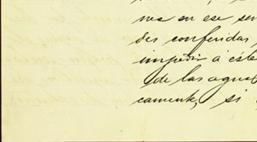 nes en ese ser
des conferidas,
impedir á éste
de las aguas
camente, si